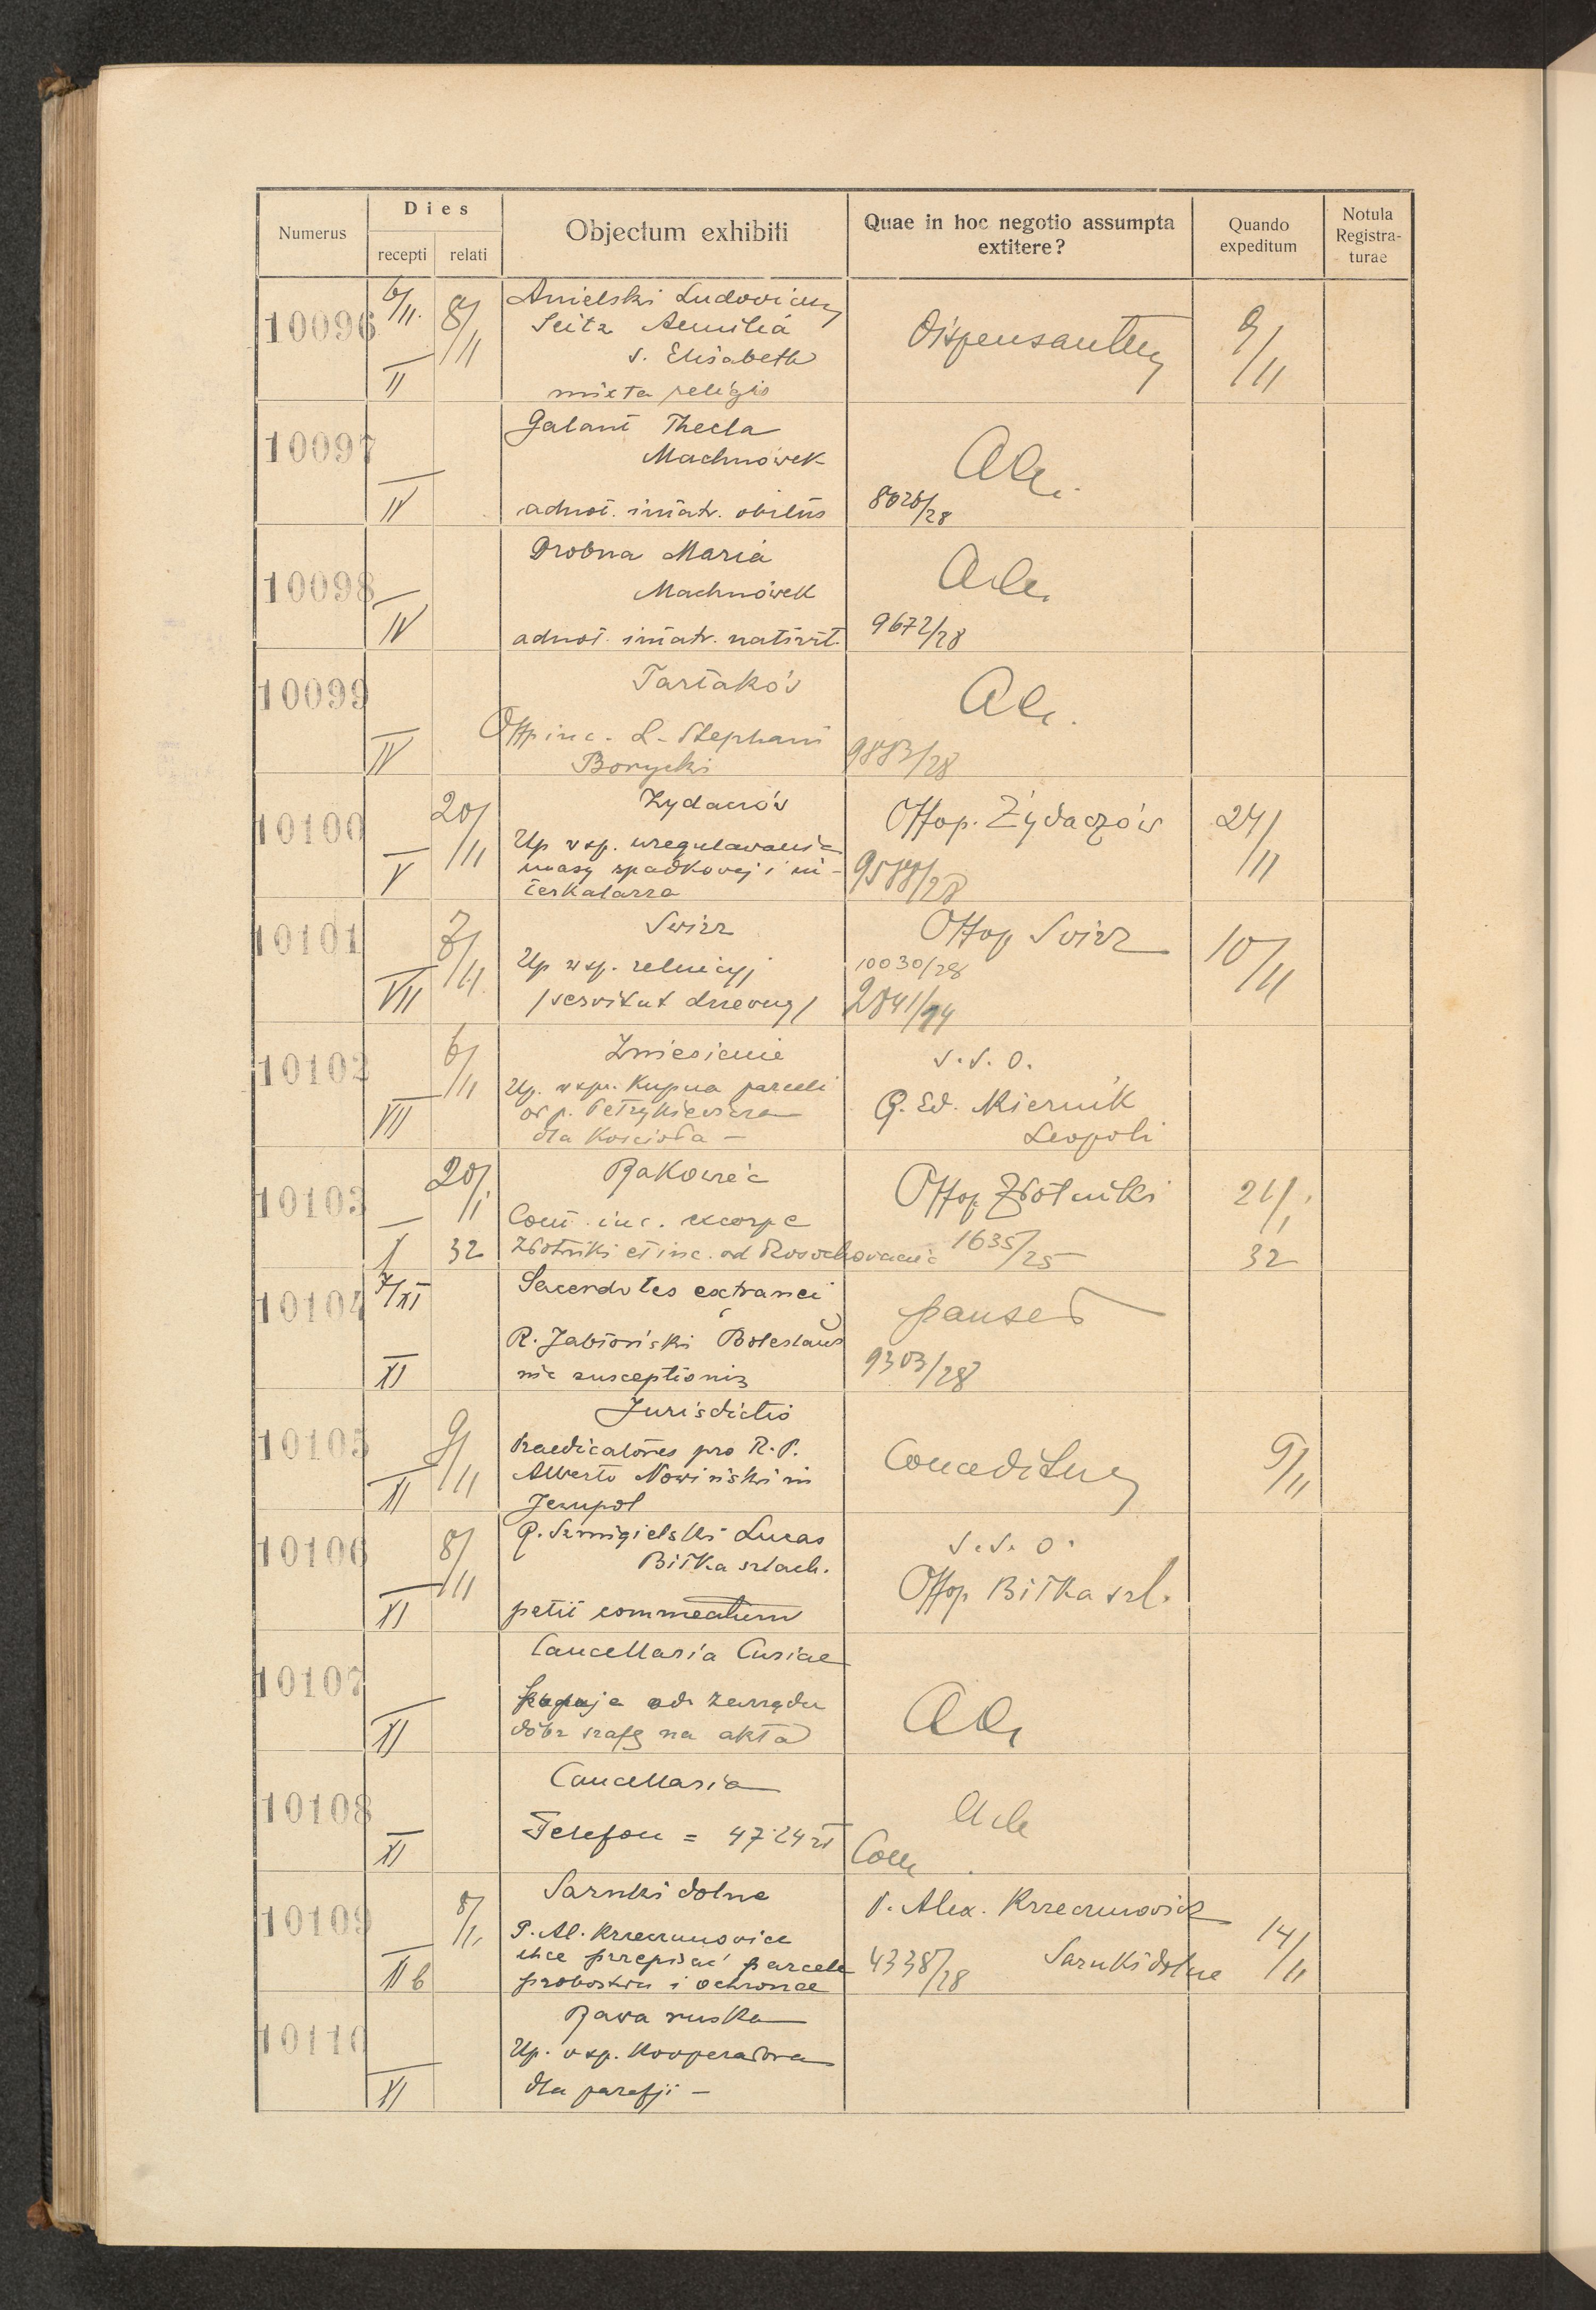 Dies
Numerus
recepti
relati
Objectum exhibiti
Quae in hoc negotio assumpta
extitere?
Quando
expeditum
Notula
Registra-
turae
10096
6/11.
8/11
II
Anielski Ludovicus
Seitz Aemilia
s. Elisabeth
mixta religio
Dispensantur
9/11
10097
IV
Galant Thecla
Machnówek
adnot. in matr.
8026/28
10098
IV
Drobna Maria
Machnówek
adnot. in matr. nativit.
9672/28
10099
IV
Tartaków
Offp inc. L. Stephani
Borycki
9883/28
10100
20/11
V
Żydaczów
Up wsp. uregulowania
masy spadkowej i in-
terkalarza
Offop. Żydaczów
9588/28
24/11
10101
7/11
VII
Świrz
Up wsp.
/serwitut drzewny/
Offop Świrz
10030/28
2841/14
10/11
10102
6/11
VII
Zniesienie
Up. wspr. Kupna parceli
od p. Petrykiewicza
dla Kościoła –
s. s. o.
R. Ed. Miernik
Leopoli
10103
20/1
32
X
Rakowiec
Com. inc. excorp e
Złotniki et inc. ad Rosochowaciec
Offop Złotniki
1635/25
21/1
32
10104
7/XI
XI
Sacerdotes extranei
R. Jabłoński Boleslaus
susceptionis
9303/28
10105
9/11
XI
Jurisdictio
Praedicatores pro R. P.
Alberto Nowiński in
Jezupol
Conceditur
9/11
10106
8/11
XI
R. Szmigielski Lucas
Biłka szlach.
petit commeatum
s. s. o.
Offop Biłka szl.
10107
XI
Cancellaria Curiae
kupuje od zarządu
dóbr szafę na akta
10108
XI
Cancellaria
Telefon = 47.24 zł
10109
8/11
II b
Sarnki dolne
P. Al. Krzeczunowicz
chce przepisać parcele
probostwu i ochronce
P. Alex. Krzeczunowicz
4338/28
Sarnki dolne
14/11
10110
XI
Rawa ruska
Up. wsp. Kooperatora
dla parafji –